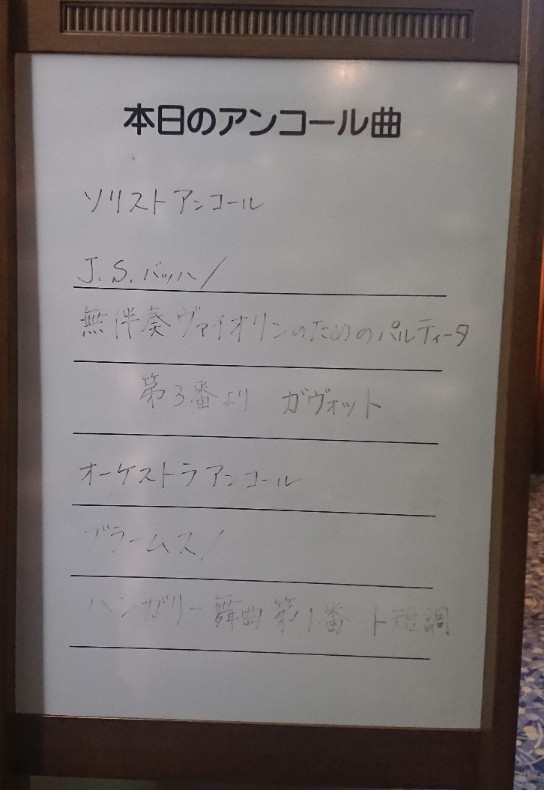 本日のアンコール曲
ソリストアンコール
J.S.バッハ/
無伴奏ヴァイオリンのためのパルティータ
第3番より ガヴォット
オーケストラアンコール
ブラームス/
ハンガリー舞曲第1番 ト短調